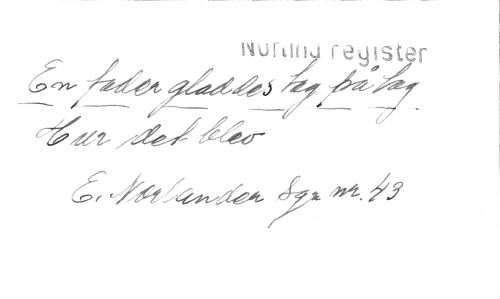 register
En fader gladdes tag på tag
Hur det blev
E. Norlander Sgr nr. 43